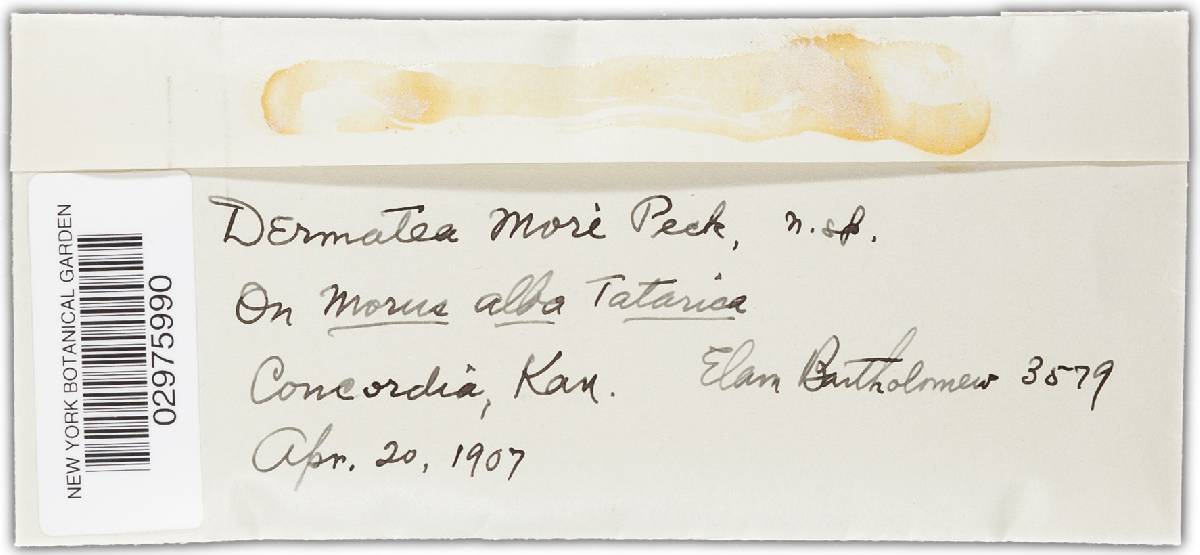 NEW YORK BOTANICAL GARDEN
02975990
Dermatea Mori Peck, n. sp.
On Morus alba Tatarica
Concordia, Kan. Elam Bartholomew 3579
Apr. 20, 1907